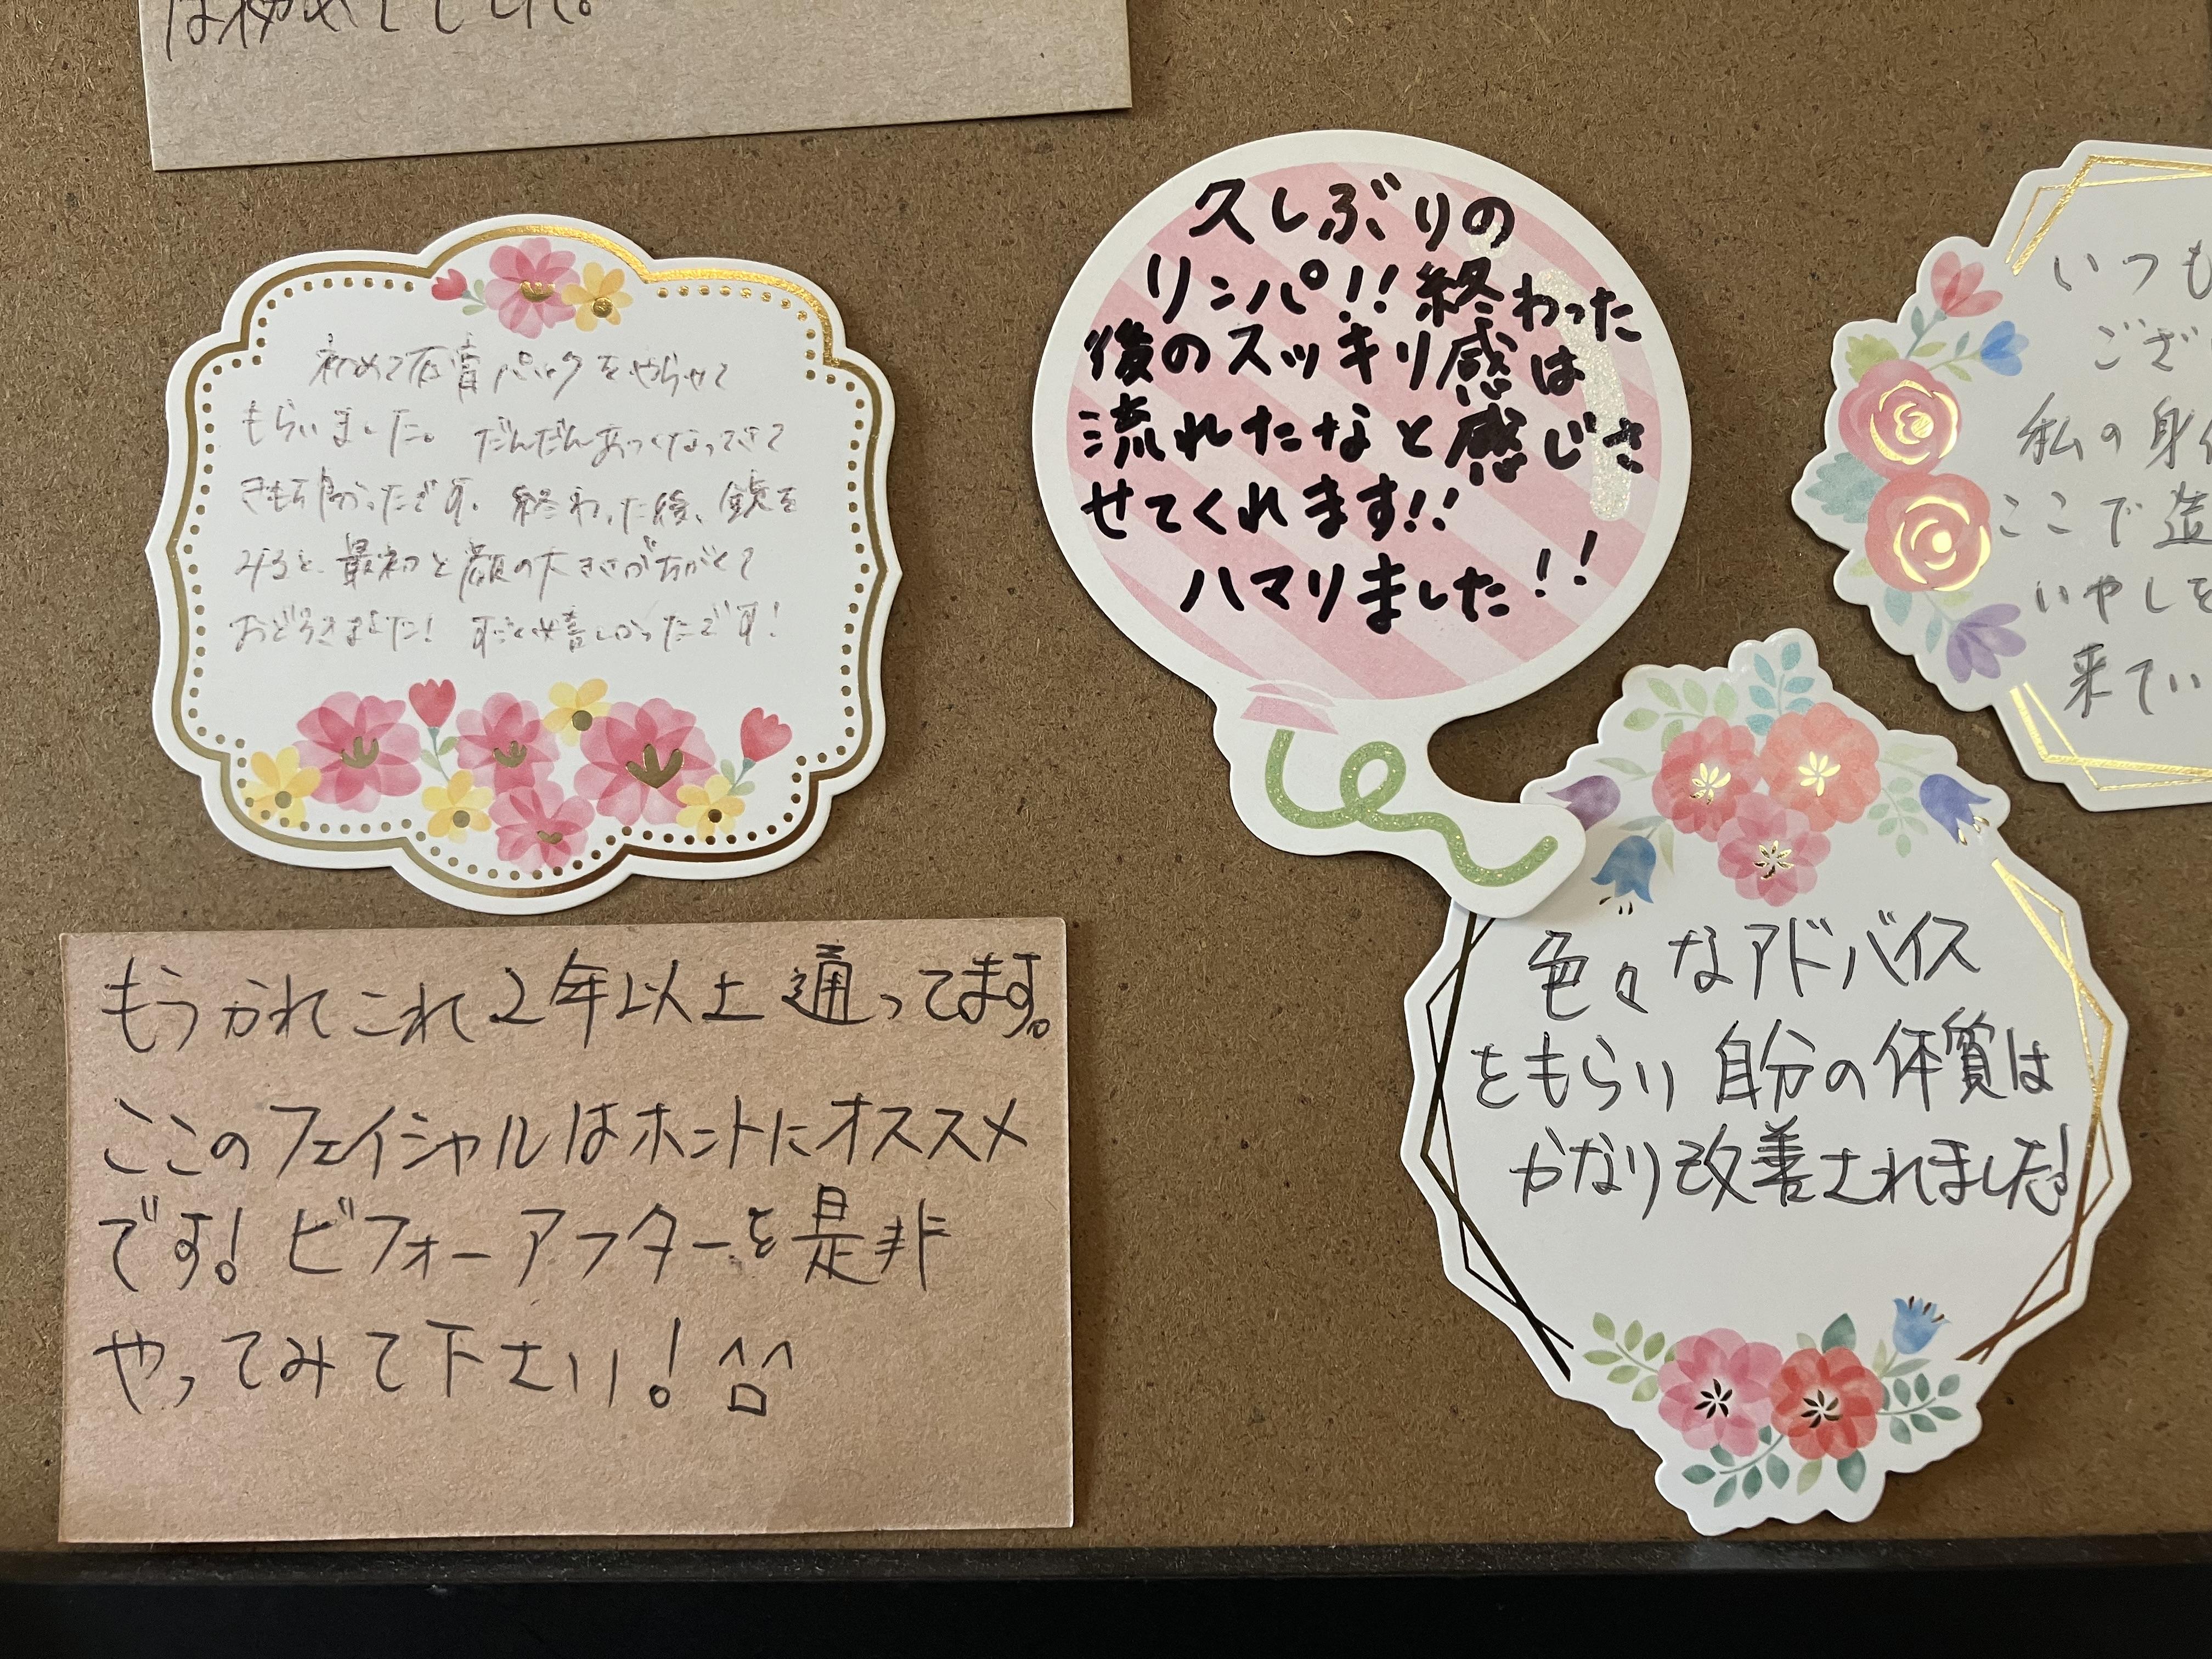 は初めてでした。
初めて石膏パックをやらせて
もらいました。だんだんあつくなってきて
きもち良かったです。終わった後、鏡を
みると、最初と顔の大きさがちがくて
おどろきました! すごく嬉しかったです!
久しぶりの
リンパ!!終わった
後のスッキリ感は
流れたなと感じさ
せてくれます!!
ハマりました!!
いつも
ござ
私の身
ここで
いやしを
来てい
もうかれこれ2年以上通ってます。
ここのフェイシャルはホントにオススメ
です! ビフォーアフターを是非
やってみて下さい! ^ロ^
色々なアドバイス
をもらい自分の体質は
かなり改善されました!